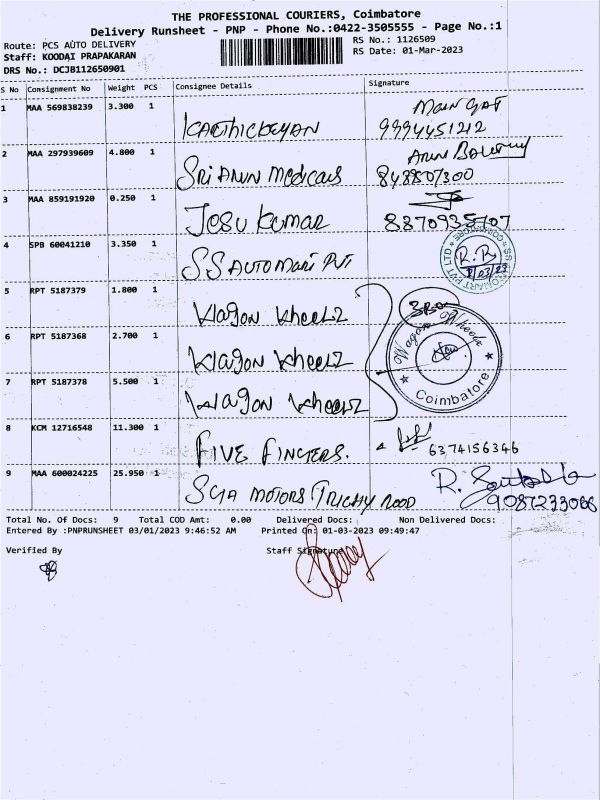 THE PROFESSIONAL COURIERS, Coimbatore
Delivery Runsheet - PNP - Phone No.:0422-3505555 - Page No.:1
Route: PCS AUTO DELIVERY
RS No.: 1126509
Staff: KOODAI PRAPAKARAN
RS Date: 01-Mar-2023
DRS No.: DCJB112650901
S No Consignment No Weight PCS Consignee Details Signature
1 MAA 569838239 3.300 1 KARTHICKEYAN Main Gat 9994451212
2 MAA 297939609 4.800 1 Sri Arun Medicals Arun 848807300
3 MAA 859191920 0.250 1 Jesu Kumar 8870935707
4 SPB 60041210 3.350 1 SS AUTOMART PVT R.R
5 RPT 5187379 1.800 1 Wagon Wheelz
6 RPT 5187368 2.700 1 Wagon Wheelz
Wagon Wheelz Coimbatore
7 RPT 5187378 5.500 1 Wagon Wheelz
8 KCM 12716548 11.300 1 FIVE FINGERS. 6374156346
9 MAA 600024225 25.950 1 SGA MOTORS TRICHY ROOD R. 9087233066
Total No. Of Docs: 9 Total COD Amt: 0.00 Delivered Docs: Non Delivered Docs:
Entered By :PNPRUNSHEET 03/01/2023 9:46:52 AM Printed On: 01-03-2023 09:49:47
Verified By Staff Signature